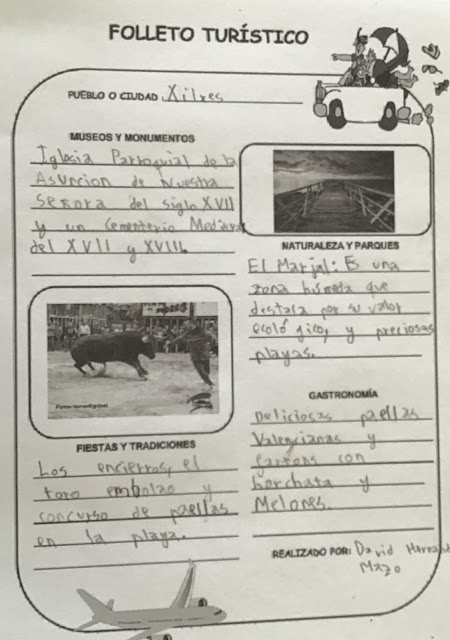 FOLLETO TURÍSTICO
PUEBLO O CIUDAD Xilxes
MUSEOS Y MONUMENTOS
Iglesia Parroquial de la
Asuncion de Nuestra
Señora del siglo XVII
y un Cementerio Medieval
del XVII y XVIII.
NATURALEZA Y PARQUES
El Marjal: Es una
zona húmeda que
destaca por su valor
ecológico, y preciosas
playas.
FIESTAS Y TRADICIONES
Los encierros, el
toro embolao y
concurso de paellas
en la playa.
GASTRONOMÍA
Deliciosas paellas
Valencianas y
fartons con
horchata y
Melones.
REALIZADO POR: David
Mazo